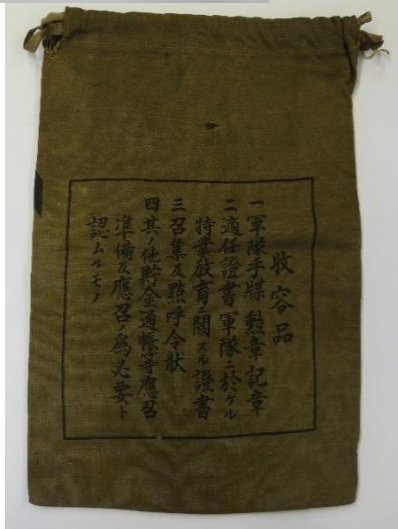 收容品
一軍隊手牒勲章記章
二適任證書軍隊ニ於ケル
特業敎育ニ關スル證書
三召集及點呼令狀
四其ノ他貯金通帳等應召
準備及應召ノ爲必要ト
認ムルモノ